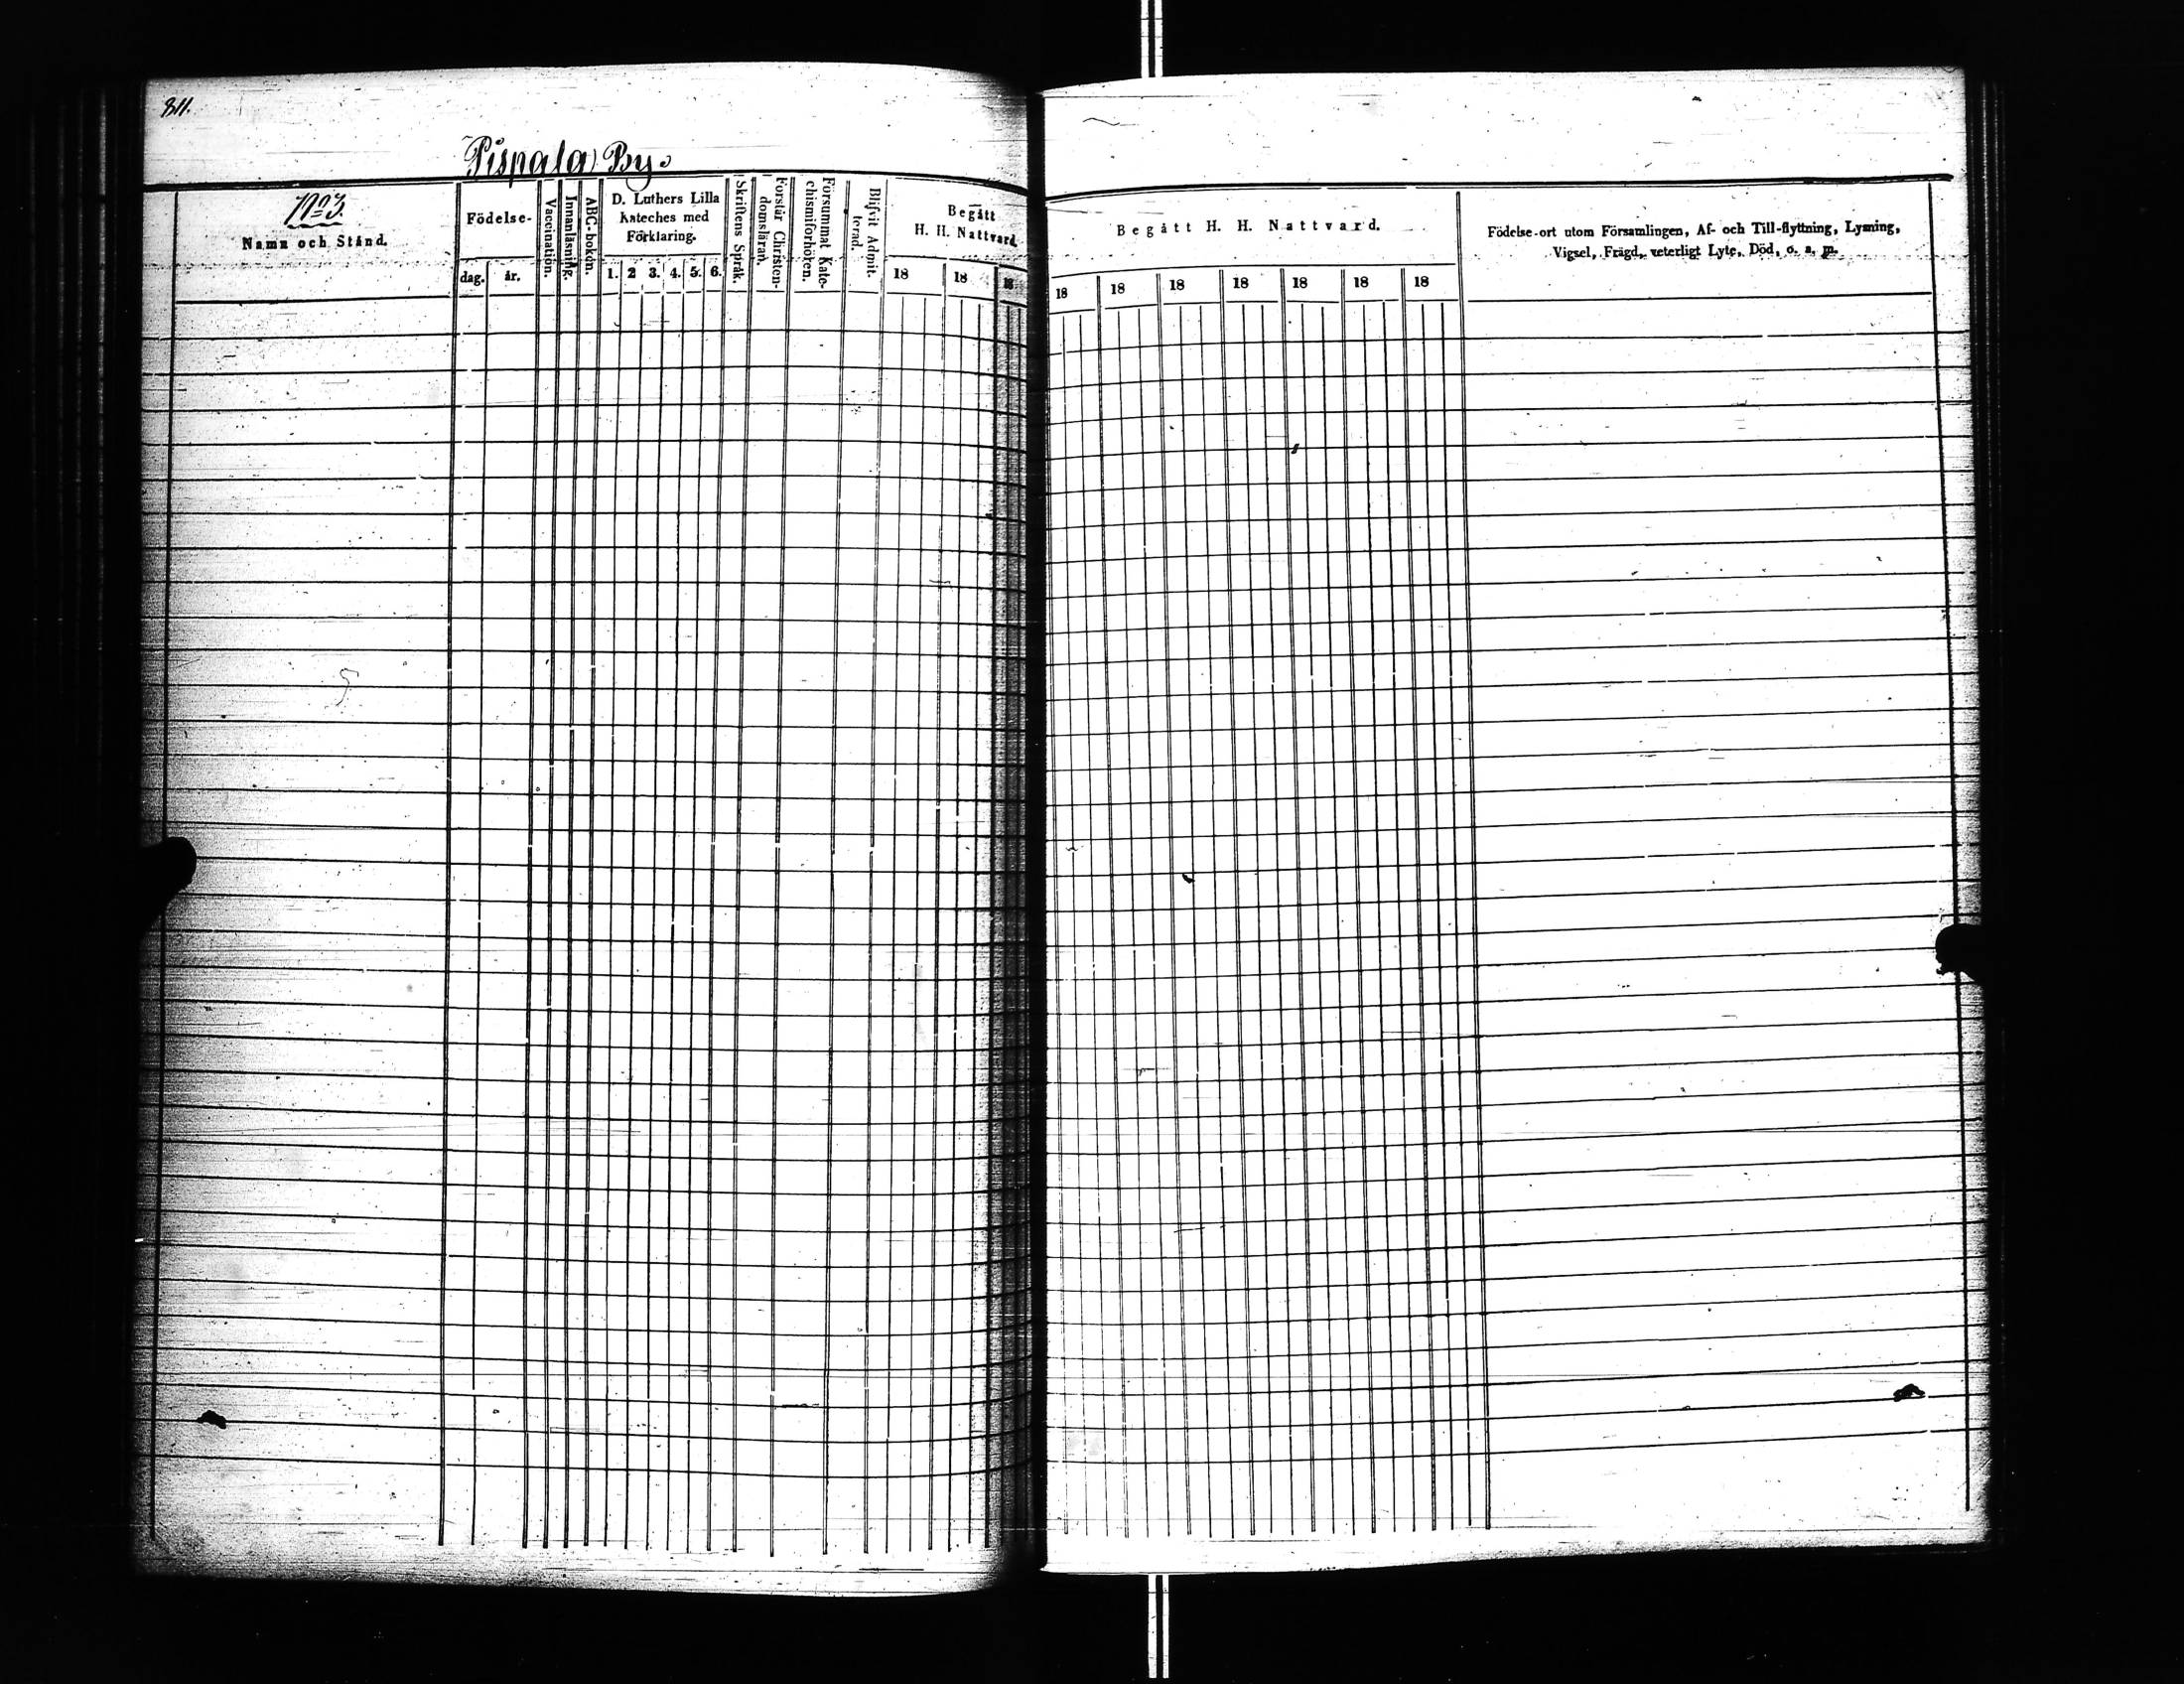 811.
Pispala By.
No 3.
Namn och Stånd.
Födelse-
dag. år.
Vaccination.
Innanläsning.
ABC-boken.
D. Luthers Lilla
Kateches med
Förklaring.
1. 2 3. 4. 5. 6.
Skriftens Språk.
Förstår Christen-
domsläran.
Försummat Kate-
chismiförhören.
Blifvit Admit-
terad.
Begått
H. H. Nattvard.
18 18 18
Begått H. H. Nattvard.
18 18 18 18 18 18 18
Födelse-ort utom Församlingen, Af- och Till-flyttning, Lysning,
Vigsel, Frägd, veterligt Lyte, Död, o. s. m.